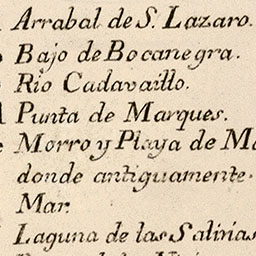 Arrabal de S. Lazaro.
Bajo de Bocanegra.
Rio Cadavaillo.
Punta de Marques.
Morro y Playa de Ma
donde antiguamente.
Mar.
Laguna de las Salinas